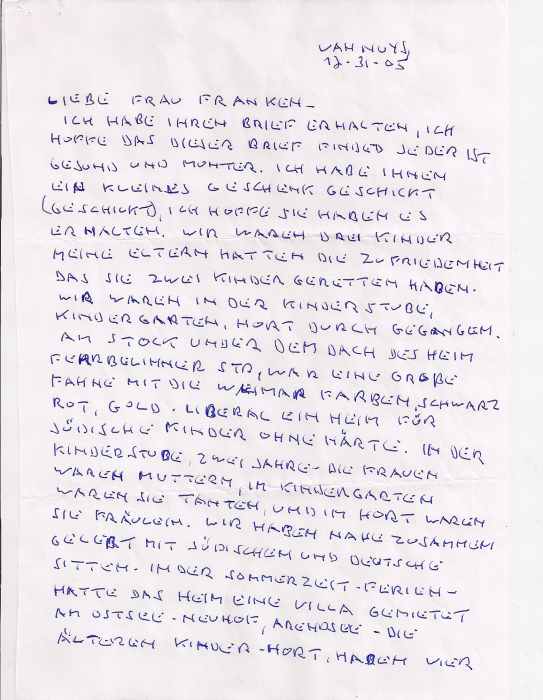 VAN NUYS,
12-31-05
LIEBE FRAU FRANKEN-
ICH HABE IHREN BRIEF ERHALTEN, ICH
HOFFE DAS DIESER BRIEF FINDED JEDER IST
GESUND UND MUNTER. ICH HABE IHNEN
EIN KLEINES GESCHENK GESCHICKT
(GESCHICKT), ICH HOFFE SIE HABEN ES
ERHALTEN. WIR WAREN DREI KINDER
MEINE ELTERN HATTEN DIE ZUFRIEDENHEIT
DAS SIE ZWEI KINDER GERETTEN HABEN.
WIR WAREN IN DER KINDERSTUBE,
KINDERGARTEN, HORT DURCH GEGANGEN.
AM STOCK UNDER DEM DACH DES HEIM
FEHRBELINNER STR, WAR EINE GROßE
FAHNE MIT DIE WEIMAR FARBEN, SCHWARZ
ROT, GOLD. LIBERAL EIN HEIM FÜR
JÜDISCHE KINDER OHNE HÄRTE. IN DER
KINDERSTUBE, ZWEI JAHRE- DIE FRAUEN
WAREN MUTTERN, IM KINDERGARTEN
WAREN SIE TANTEN, UND IM HORT WAREN
SIE FRÄULEIN. WIR HABEN NAHE ZUSAMMEN
GELEBT MIT JÜDISCHEN UND DEUTSCHE
SITTEN. IN DER SOMMERZEIT-FERIEN-
HATTE DAS HEIM EINE VILLA GEMIETET
AM OSTSEE-NEUHOF, ARENDSEE-DIE
ÄLTEREN KINDER-HORT, HABEN VIER